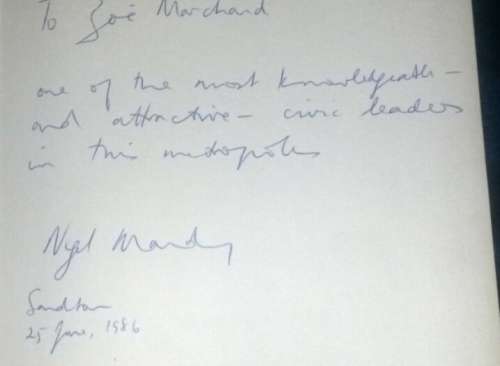 To Zoë Marchand
one of the most knowledgeable -
and attractive - civic leaders
in this metropolis
Nigel Mandy
Sandton
25 June, 1986